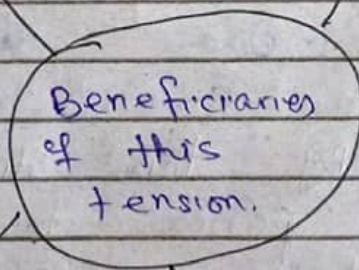 Beneficiaries
of this
tension.